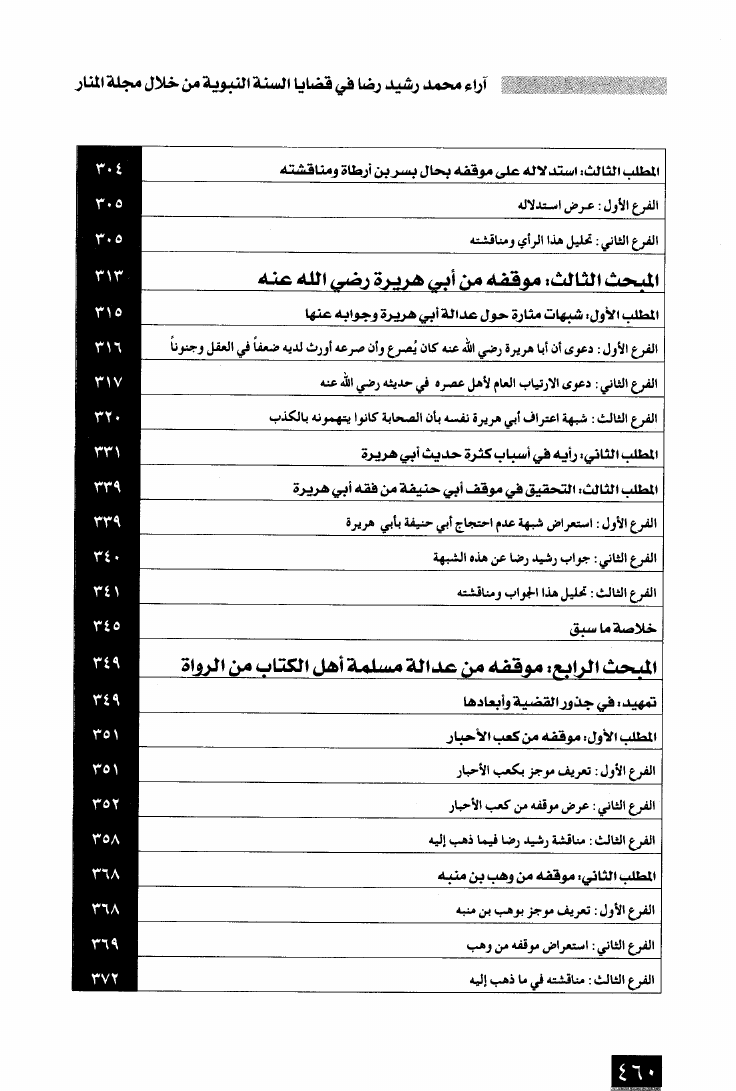 آراء محمد رشيد رضا في قضايا السنة النبوية من خلال مجلة المنار
المطلب الثالث: استدلاله على موقفه بحال بسر بن أرطاة ومناقشته ٣٠٤
الفرع الأول: عرض استدلاله ٣٠٥
الفرع الثاني: تحليل هذا الرأي ومناقشته ٣٠٥
المبحث الثالث: موقفه من أبي هريرة رضي الله عنه ٣١٣
المطلب الأول: شبهات مثارة حول عدالة أبي هريرة وجوابه عنها ٣١٥
الفرع الأول: دعوى أن أبا هريرة رضي الله عنه كان يُصرع وأن صرعه أورث لديه ضعفاً في العقل وجنوناً ٣١٦
الفرع الثاني: دعوى الارتياب العام لأهل عصره في حديثه رضي الله عنه ٣١٧
الفرع الثالث: شبهة اعتراف أبي هريرة نفسه بأن الصحابة كانوا يتهمونه بالكذب ٣٢٠
المطلب الثاني: رأيه في أسباب كثرة حديث أبي هريرة ٣٣١
المطلب الثالث: التحقيق في موقف أبي حنيفة من فقه أبي هريرة ٣٣٩
الفرع الأول: استعراض شبهة عدم احتجاج أبي حنيفة بأبي هريرة ٣٣٩
الفرع الثاني: جواب رشيد رضا عن هذه الشبهة ٣٤٠
الفرع الثالث: تحليل هذا الجواب ومناقشته ٣٤١
خلاصة ما سبق ٣٤٥
المبحث الرابع: موقفه من عدالة مسلمة أهل الكتاب من الرواة ٣٤٩
تمهيد: في جذور القضية وأبعادها ٣٤٩
المطلب الأول: موقفه من كعب الأحبار ٣٥١
الفرع الأول: تعريف موجز بكعب الأحبار ٣٥١
الفرع الثاني: عرض موقفه من كعب الأحبار ٣٥٢
الفرع الثالث: مناقشة رشيد رضا فيما ذهب إليه ٣٥٨
المطلب الثاني: موقفه من وهب بن منبه ٣٦٨
الفرع الأول: تعريف موجز بوهب بن منبه ٣٦٨
الفرع الثاني: استعراض موقفه من وهب ٣٦٩
الفرع الثالث: مناقشته في ما ذهب إليه ٣٧٢
٤٦٠